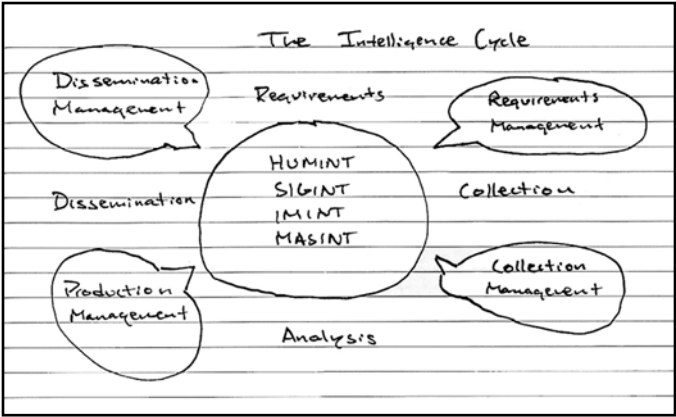 The Intelligence Cycle
Dissemination
Management
Requirements
Requirements
Management
HUMINT
SIGINT
IMINT
MASINT
Dissemination
Collection
Production
Management
Collection
Management
Analysis